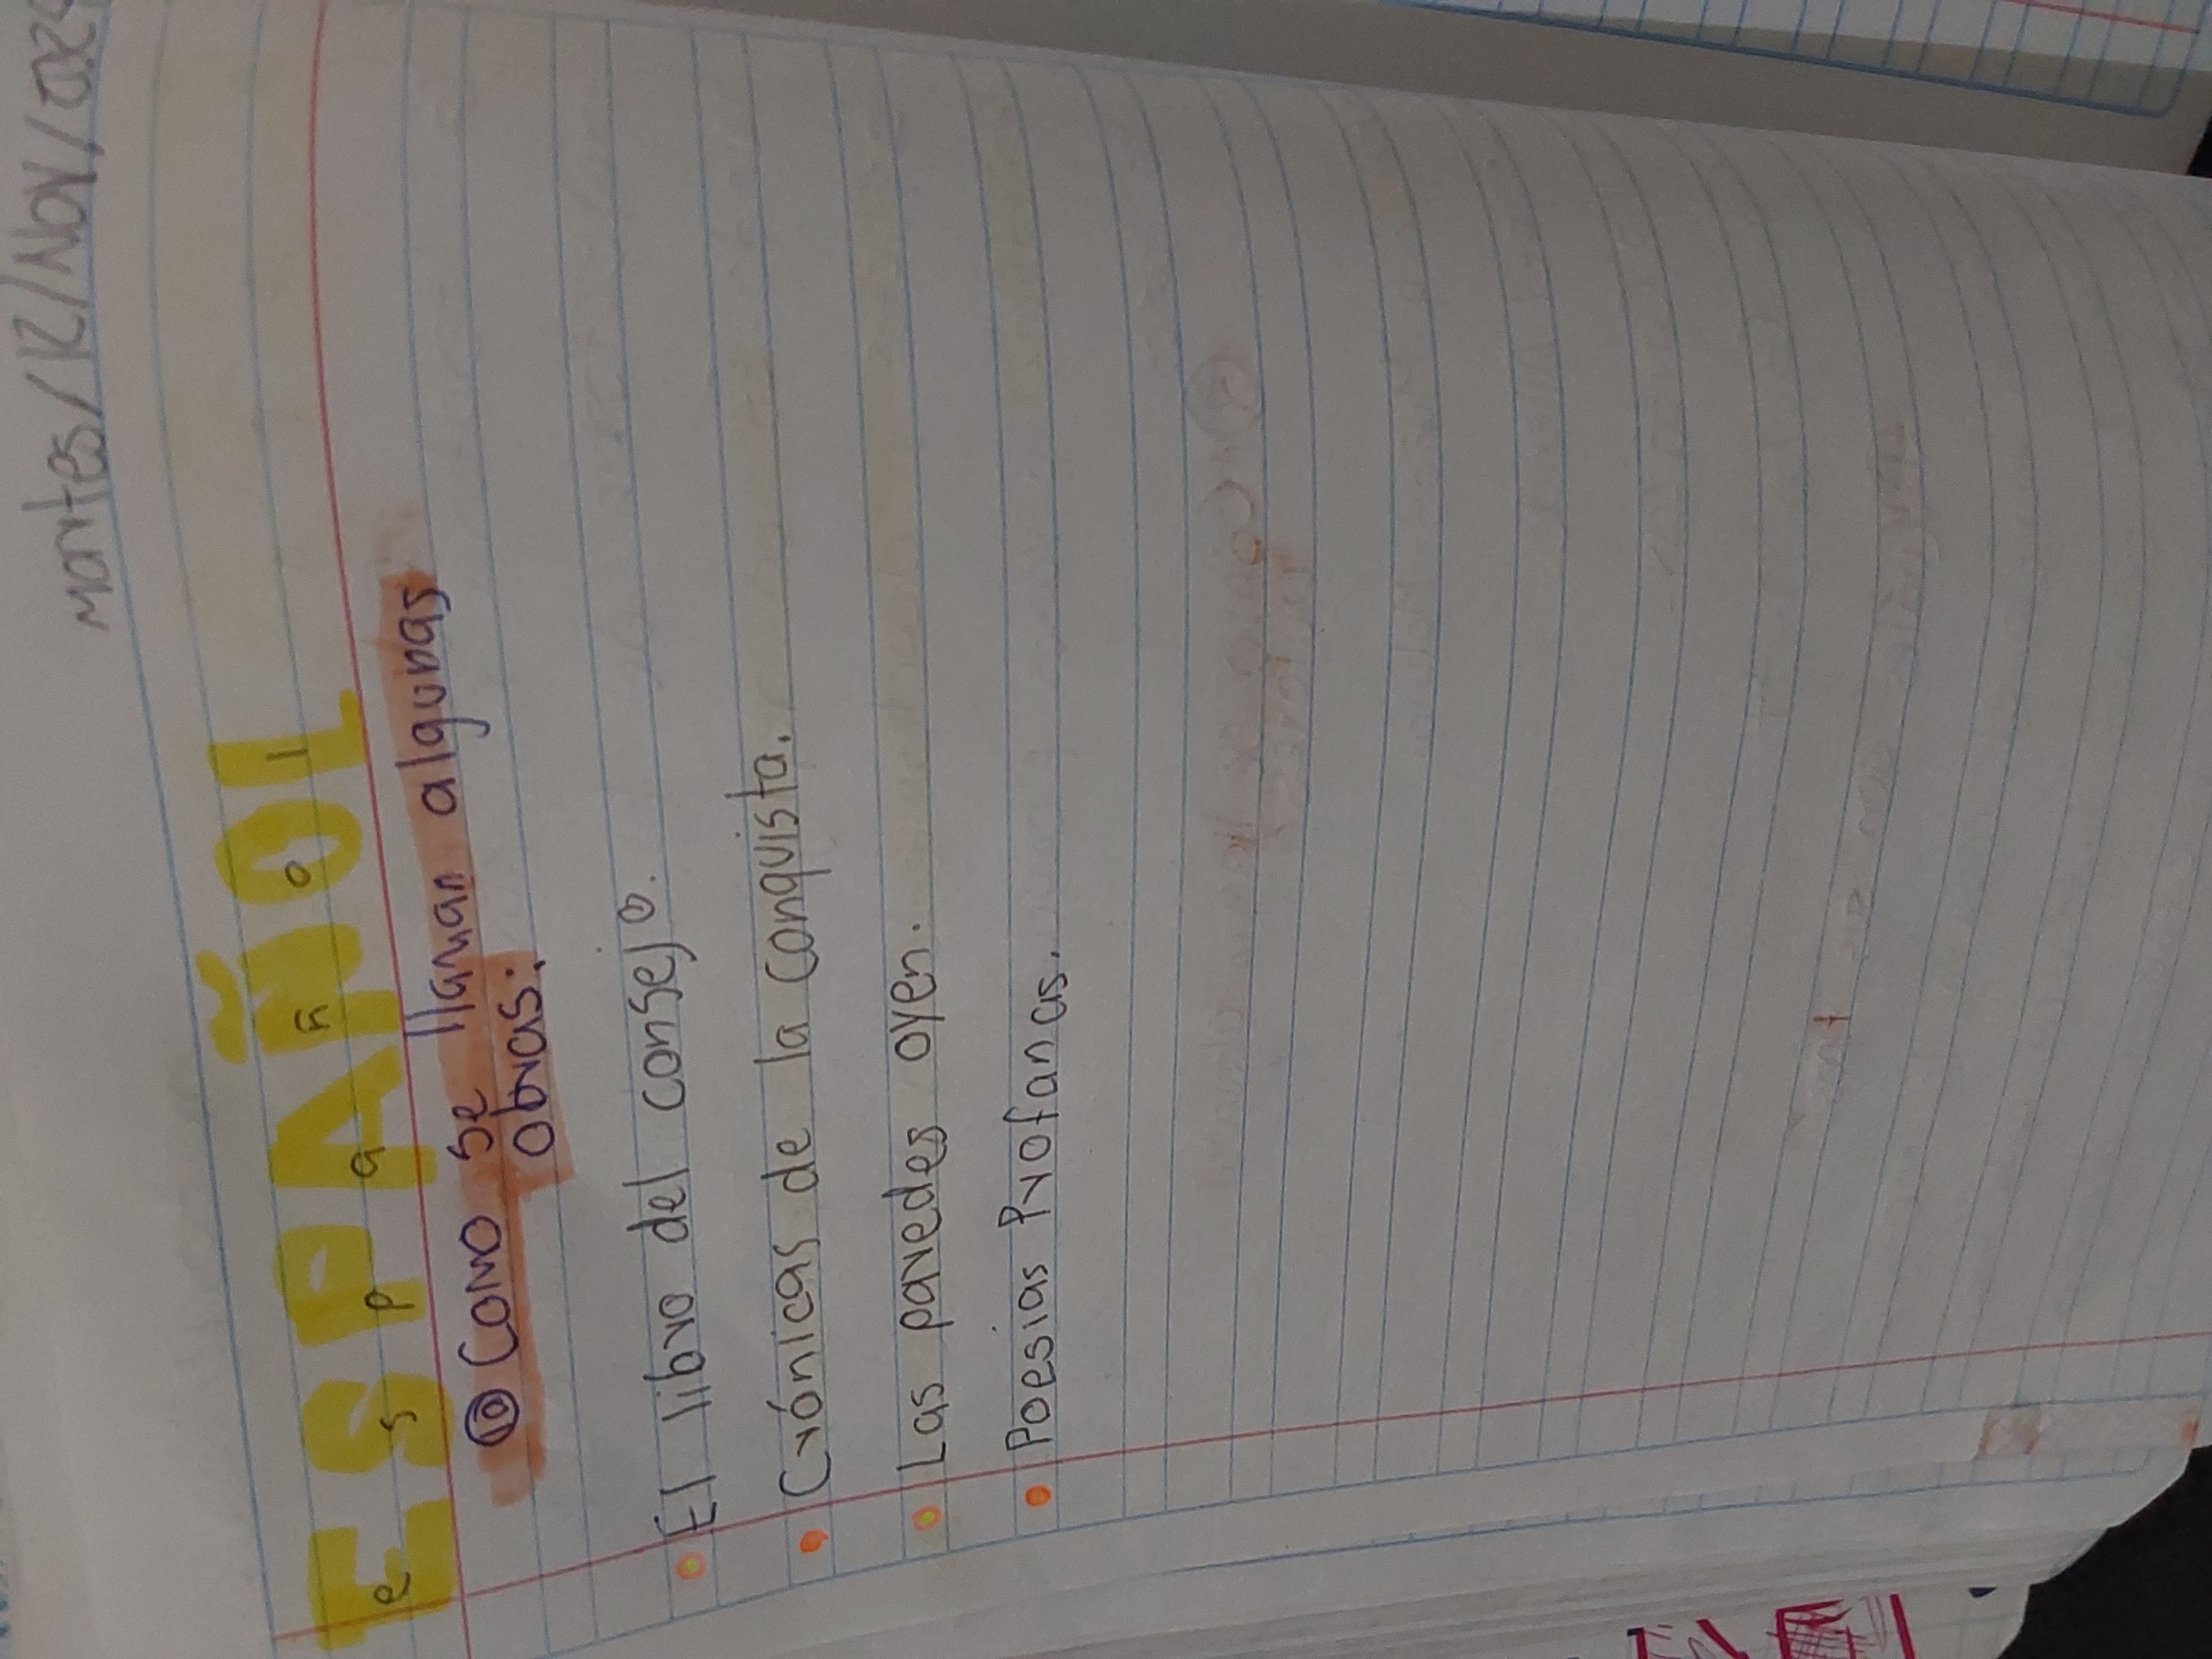 martes/12/Nov/
ESPAÑOL
e s p a ñ o l
10 Como se llaman algunas
obras:
El libro del consejo.
Crónicas de la Conquista.
Las paredes oyen.
Poesias Profanas.